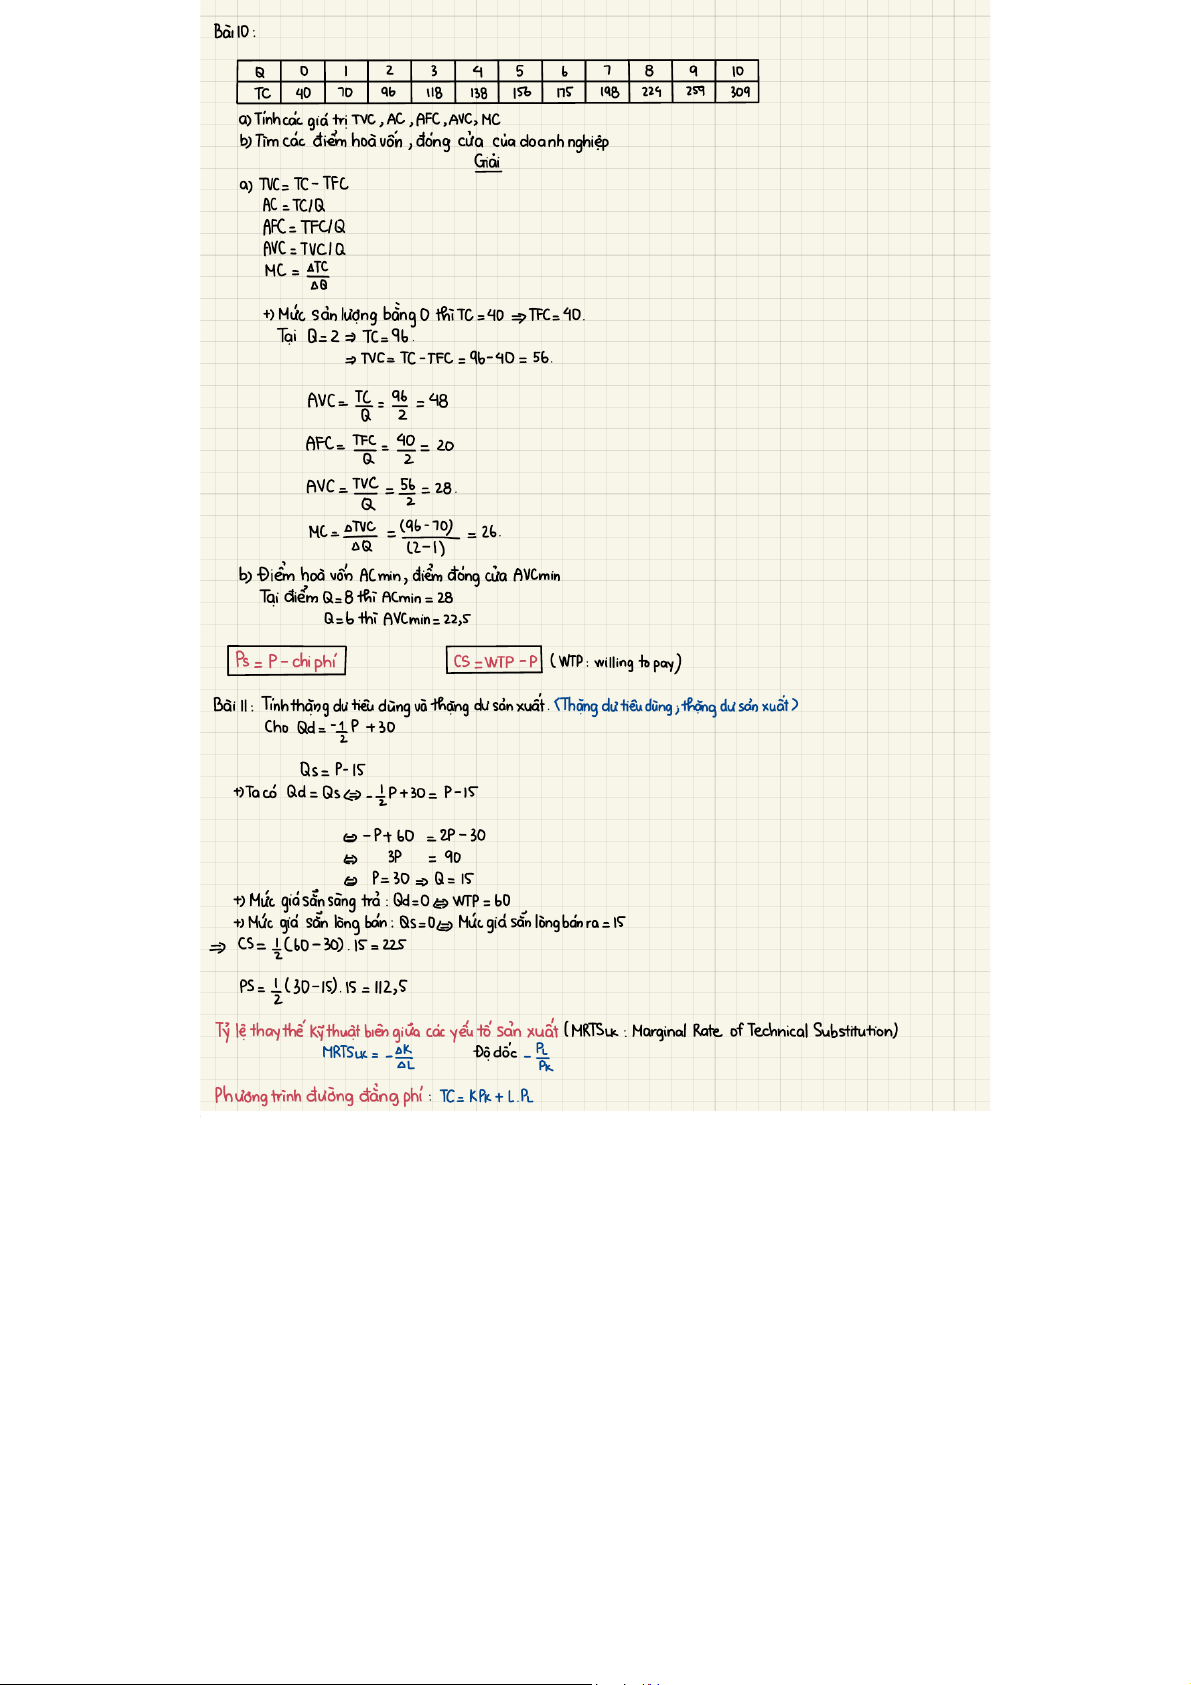 Bài 10:
Q 0 1 2 3 4 5 6 7 8 9 10
TC 40 70 96 118 138 156 175 198 224 259 309
a) Tính các giá trị TVC, AC, AFC, AVC, MC
b) Tìm các điểm hoà vốn, đóng cửa của doanh nghiệp
Giải
a) TVC = TC - TFC
AC = TC/Q
AFC = TFC/Q
AVC = TVC/Q
MC = ΔTC/ΔQ
+) Mức sản lượng bằng 0 thì TC = 40 => TFC = 40.
Tại Q = 2 => TC = 96.
=> TVC = TC - TFC = 96 - 40 = 56.
AVC = TC/Q = 96/2 = 48
AFC = TFC/Q = 40/2 = 20
AVC = TVC/Q = 56/2 = 28.
MC = ΔTVC/ΔQ = (96-70)/(2-1) = 26.
b) Điểm hoà vốn ACmin, điểm đóng cửa AVCmin
Tại điểm Q = 8 thì ACmin = 28
Q = 6 thì AVCmin = 22,5
Ps = P - chi phí CS = WTP - P (WTP: willing to pay)
Bài 11: Tính thặng dư tiêu dùng và thặng dư sản xuất. (Thặng dư tiêu dùng, thặng dư sản xuất)
Cho Qd = -1/2 P + 30
Qs = P - 15
+) Ta có Qd = Qs <=> -1/2 P + 30 = P - 15
<=> -P + 60 = 2P - 30
<=> 3P = 90
<=> P = 30 => Q = 15
+) Mức giá sẵn sàng trả: Qd = 0 <=> WTP = 60
+) Mức giá sẵn lòng bán: Qs = 0 <=> Mức giá sẵn lòng bán ra = 15
=> CS = 1/2 (60 - 30). 15 = 225
PS = 1/2 (30 - 15). 15 = 112,5
Tỷ lệ thay thế kỹ thuật biên giữa các yếu tố sản xuất (MRTSLK: Marginal Rate of Technical Substitution)
MRTSLK = -ΔK/ΔL Độ dốc -PL/PK
Phương trình đường đẳng phí: TC = K.PK + L.PL